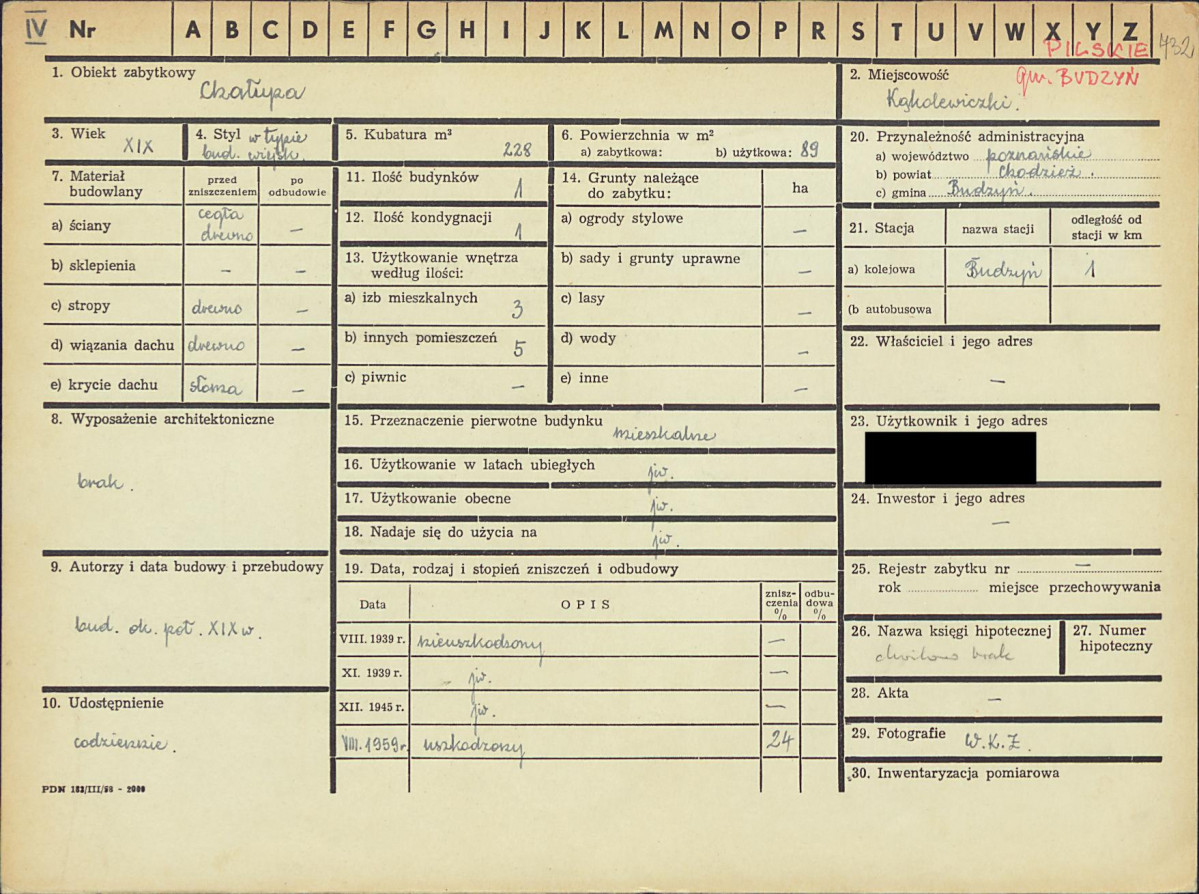 IV Nr A B C D E F G H I J K L M N O P R S T U V W X Y Z
PILSKIE 432
gm. BUDZYŃ
1. Obiekt zabytkowy
Chałupa
2. Miejscowość
Kąkolewiczki.
3. Wiek
XIX
4. Styl w typie
bud. wiejsk.
5. Kubatura m³
228
6. Powierzchnia w m²
a) zabytkowa: b) użytkowa: 89
7. Materiał budowlany
przed zniszczeniem
po odbudowie
a) ściany cegła drewno –
b) sklepienia – –
c) stropy drewno –
d) wiązania dachu drewno –
e) krycie dachu słoma –
8. Wyposażenie architektoniczne
brak.
9. Autorzy i data budowy i przebudowy
bud. ok. poł. XIX w.
10. Udostępnienie
codziennie.
PDN 183/III/58 - 2000
11. Ilość budynków
1
12. Ilość kondygnacji
1
13. Użytkowanie wnętrza
według ilości:
a) izb mieszkalnych 3
b) innych pomieszczeń 5
c) piwnic –
14. Grunty należące
do zabytku:
ha
a) ogrody stylowe –
b) sady i grunty uprawne –
c) lasy –
d) wody –
e) inne –
15. Przeznaczenie pierwotne budynku
mieszkalne
16. Użytkowanie w latach ubiegłych
jw.
17. Użytkowanie obecne
jw.
18. Nadaje się do użycia na
jw.
19. Data, rodzaj i stopień zniszczeń i odbudowy
Data OPIS znisz-czenia % odbu-dowa %
VIII. 1939 r. nieuszkodzony –
XI. 1939 r. – jw. –
XII. 1945 r. jw. –
VIII. 1959 r. uszkodzony 24
20. Przynależność administracyjna
a) województwo poznańskie
b) powiat Chodzież.
c) gmina Budzyń.
21. Stacja nazwa stacji odległość od
stacji w km
a) kolejowa Budzyń 1
(b autobusowa
22. Właściciel i jego adres
–
23. Użytkownik i jego adres
24. Inwestor i jego adres
–
25. Rejestr zabytku nr –
rok miejsce przechowywania
26. Nazwa księgi hipotecznej
chwilowo brak
27. Numer
hipoteczny
28. Akta
–
29. Fotografie W.K.Z.
30. Inwentaryzacja pomiarowa